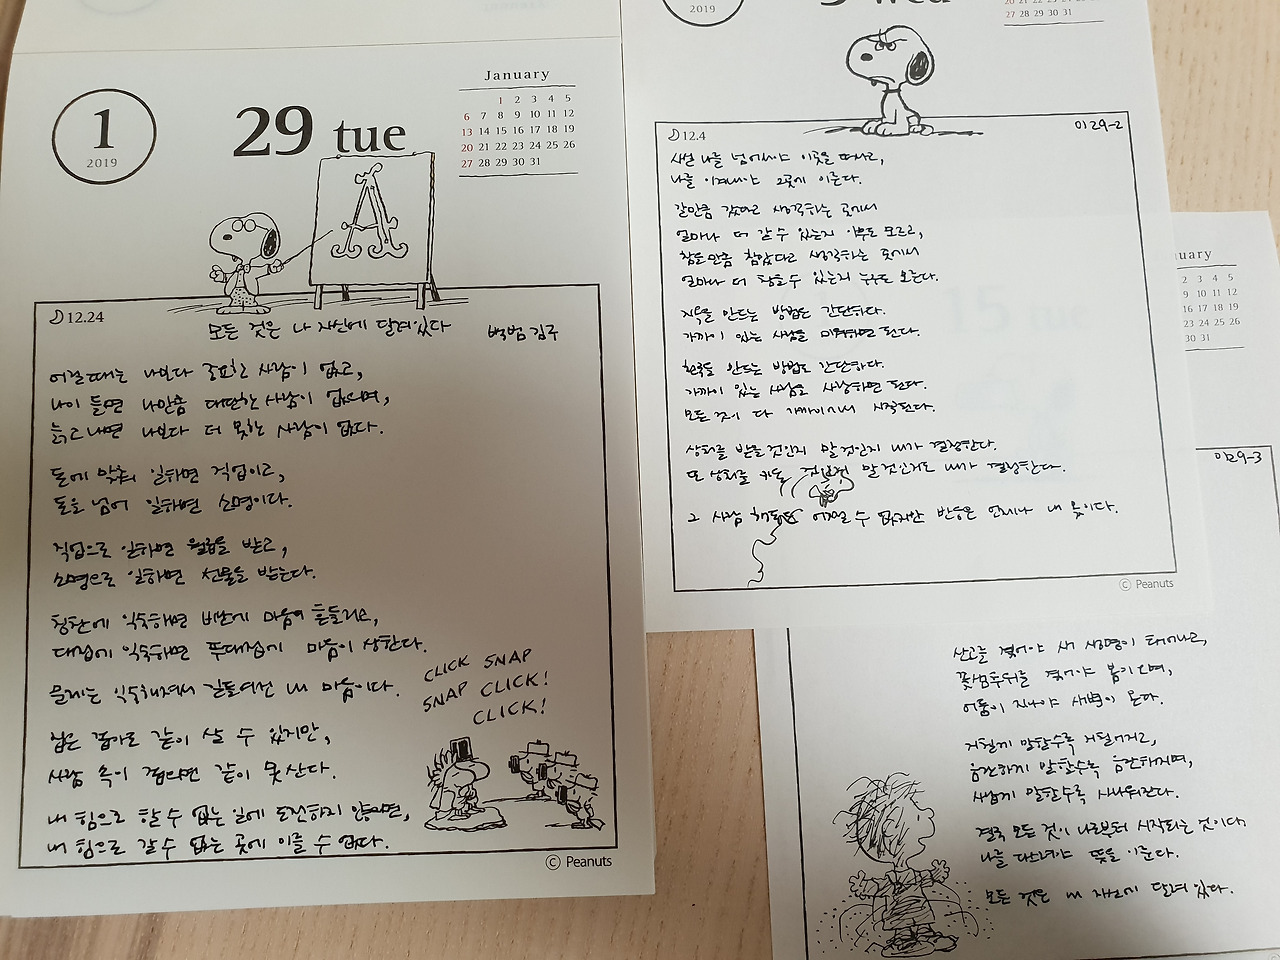 1
2019
29 tue
January
1 2 3 4 5
6 7 8 9 10 11 12
13 14 15 16 17 18 19
20 21 22 23 24 25 26
27 28 29 30 31
A
12.24
모든 것은 나 자신에 달려있다 백범 김구
어릴때는 나보다 중요한 사람이 없고,
나이 들면 나만큼 대단한 사람이 없으며,
늙고 나면 나보다 더 못한 사람이 없다.
돈에 맞춰 일하면 직업이고,
돈을 넘어 일하면 소명이다.
직업으로 일하면 월급을 받고,
소명으로 일하면 선물을 받는다.
칭찬에 익숙하면 비난에 마음이 흔들리고,
대접에 익숙하면 푸대접에 마음이 상한다.
문제는 익숙해져서 길들여진 내 마음이다.
집은 좁아도 같이 살 수 있지만,
사람 속이 좁으면 같이 못 산다.
내 힘으로 할 수 없는 일에 도전하지 않으면,
내 힘으로 갈 수 없는 곳에 이를 수 없다.
CLICK SNAP
SNAP CLICK!
CLICK!
© Peanuts
2019
wed
20 21 22 23 24 25 26
27 28 29 30 31
12.4
0129-2
사실 나를 넘어서야 이곳을 떠나고,
나를 이겨내야 그곳에 이른다.
갈만큼 갔다고 생각하는 곳에서
얼마나 더 갈 수 있는지 아무도 모르고,
참을만큼 참았다고 생각하는 곳에서
얼마나 더 참을 수 있는지 누구도 모른다.
지옥을 만드는 방법은 간단하다.
가까이 있는 사람을 미워하면 된다.
천국을 만드는 방법도 간단하다.
가까이 있는 사람을 사랑하면 된다.
모든 것이 다 가까이에서 시작된다.
상처를 받을 것인지 말 것인지 내가 결정한다.
또 상처를 키울 것인지 말 것인지도 내가 결정한다.
그 사람 행동은 어쩔 수 없지만 반응은 언제나 내 몫이다.
© Peanuts
uary
2 3 4 5
9 10 11 12
16 17 18 19
23 24 25 26
30 31
0129-3
산고를 겪어야 새 생명이 태어나고,
꽃샘추위를 겪어야 봄이 오며,
어둠이 지나야 새벽이 온다.
거칠게 말할수록 거칠어지고,
음란하게 말할수록 음란해지며,
사납게 말할수록 사나워진다.
결국 모든 것이 나로부터 시작되는 것이다
나를 다스려야 뜻을 이룬다.
모든 것은 내 자신에 달려 있다.